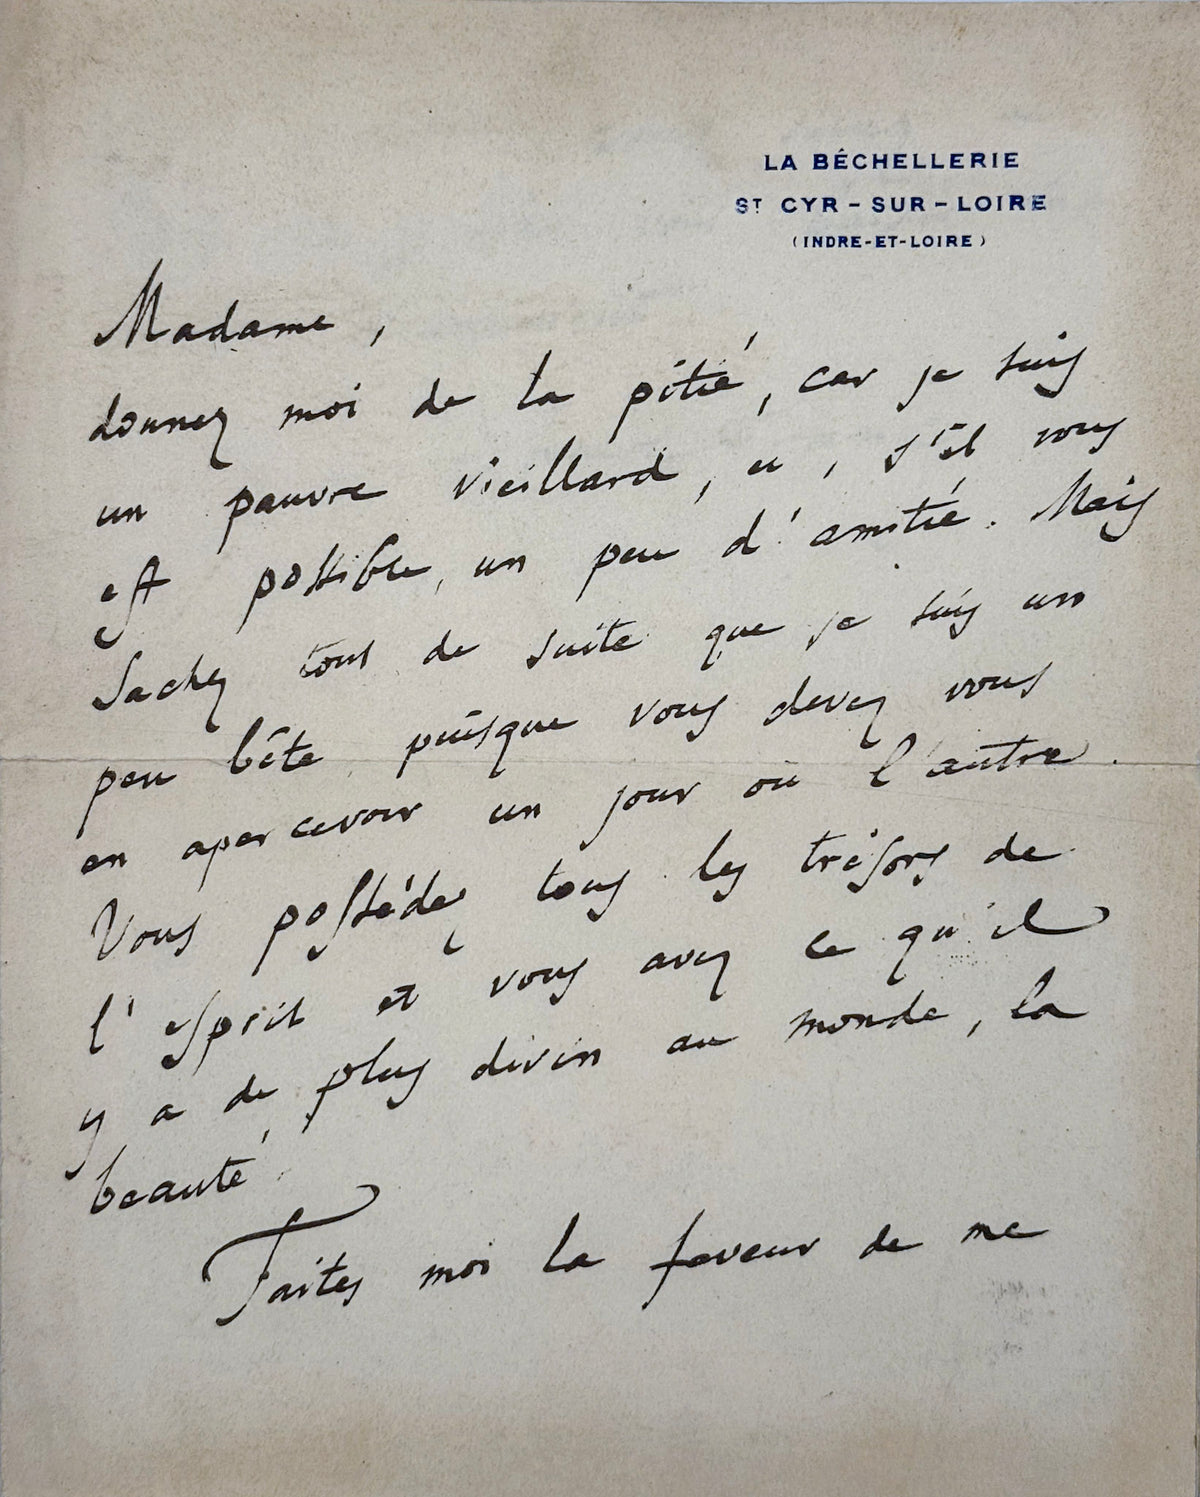 LA BÉCHELLERIE
ST CYR - SUR - LOIRE
(INDRE-ET-LOIRE)
Madame,
donnez moi de la pitié, car je suis
un pauvre vieillard, et, s'il vous
est possible, un peu d'amitié. Mais
sachez tout de suite que je suis un
peu bête puisque vous devez vous
en apercevoir un jour ou l'autre.
Vous possédez tous les trésors de
l'esprit et vous avez ce qu'il
y a de plus divin au monde, la
beauté.
Faites moi la faveur de me